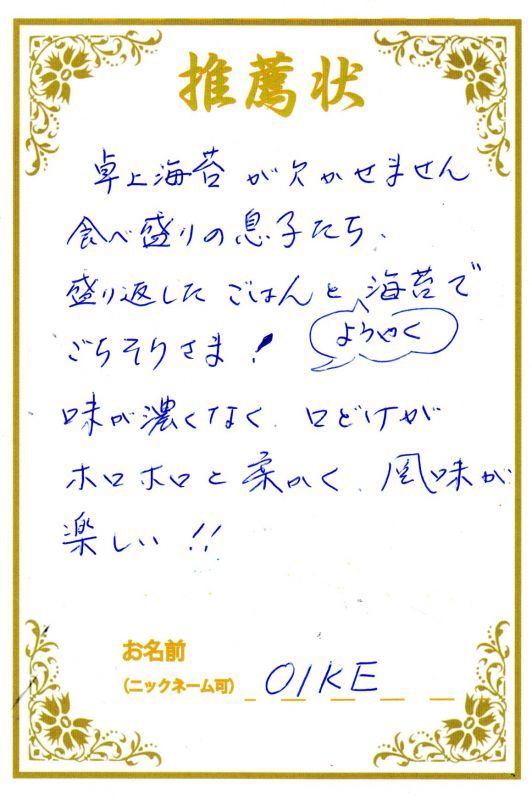 推薦状
卓上海苔が欠かせません
食べ盛りの息子たち、
盛り返したごはんと海苔で
ようやく
ごちそうさま!
味が濃くなく、口どけが
ホロホロと柔かく、風味が
楽しい!!
お名前
(ニックネーム可) OIKE